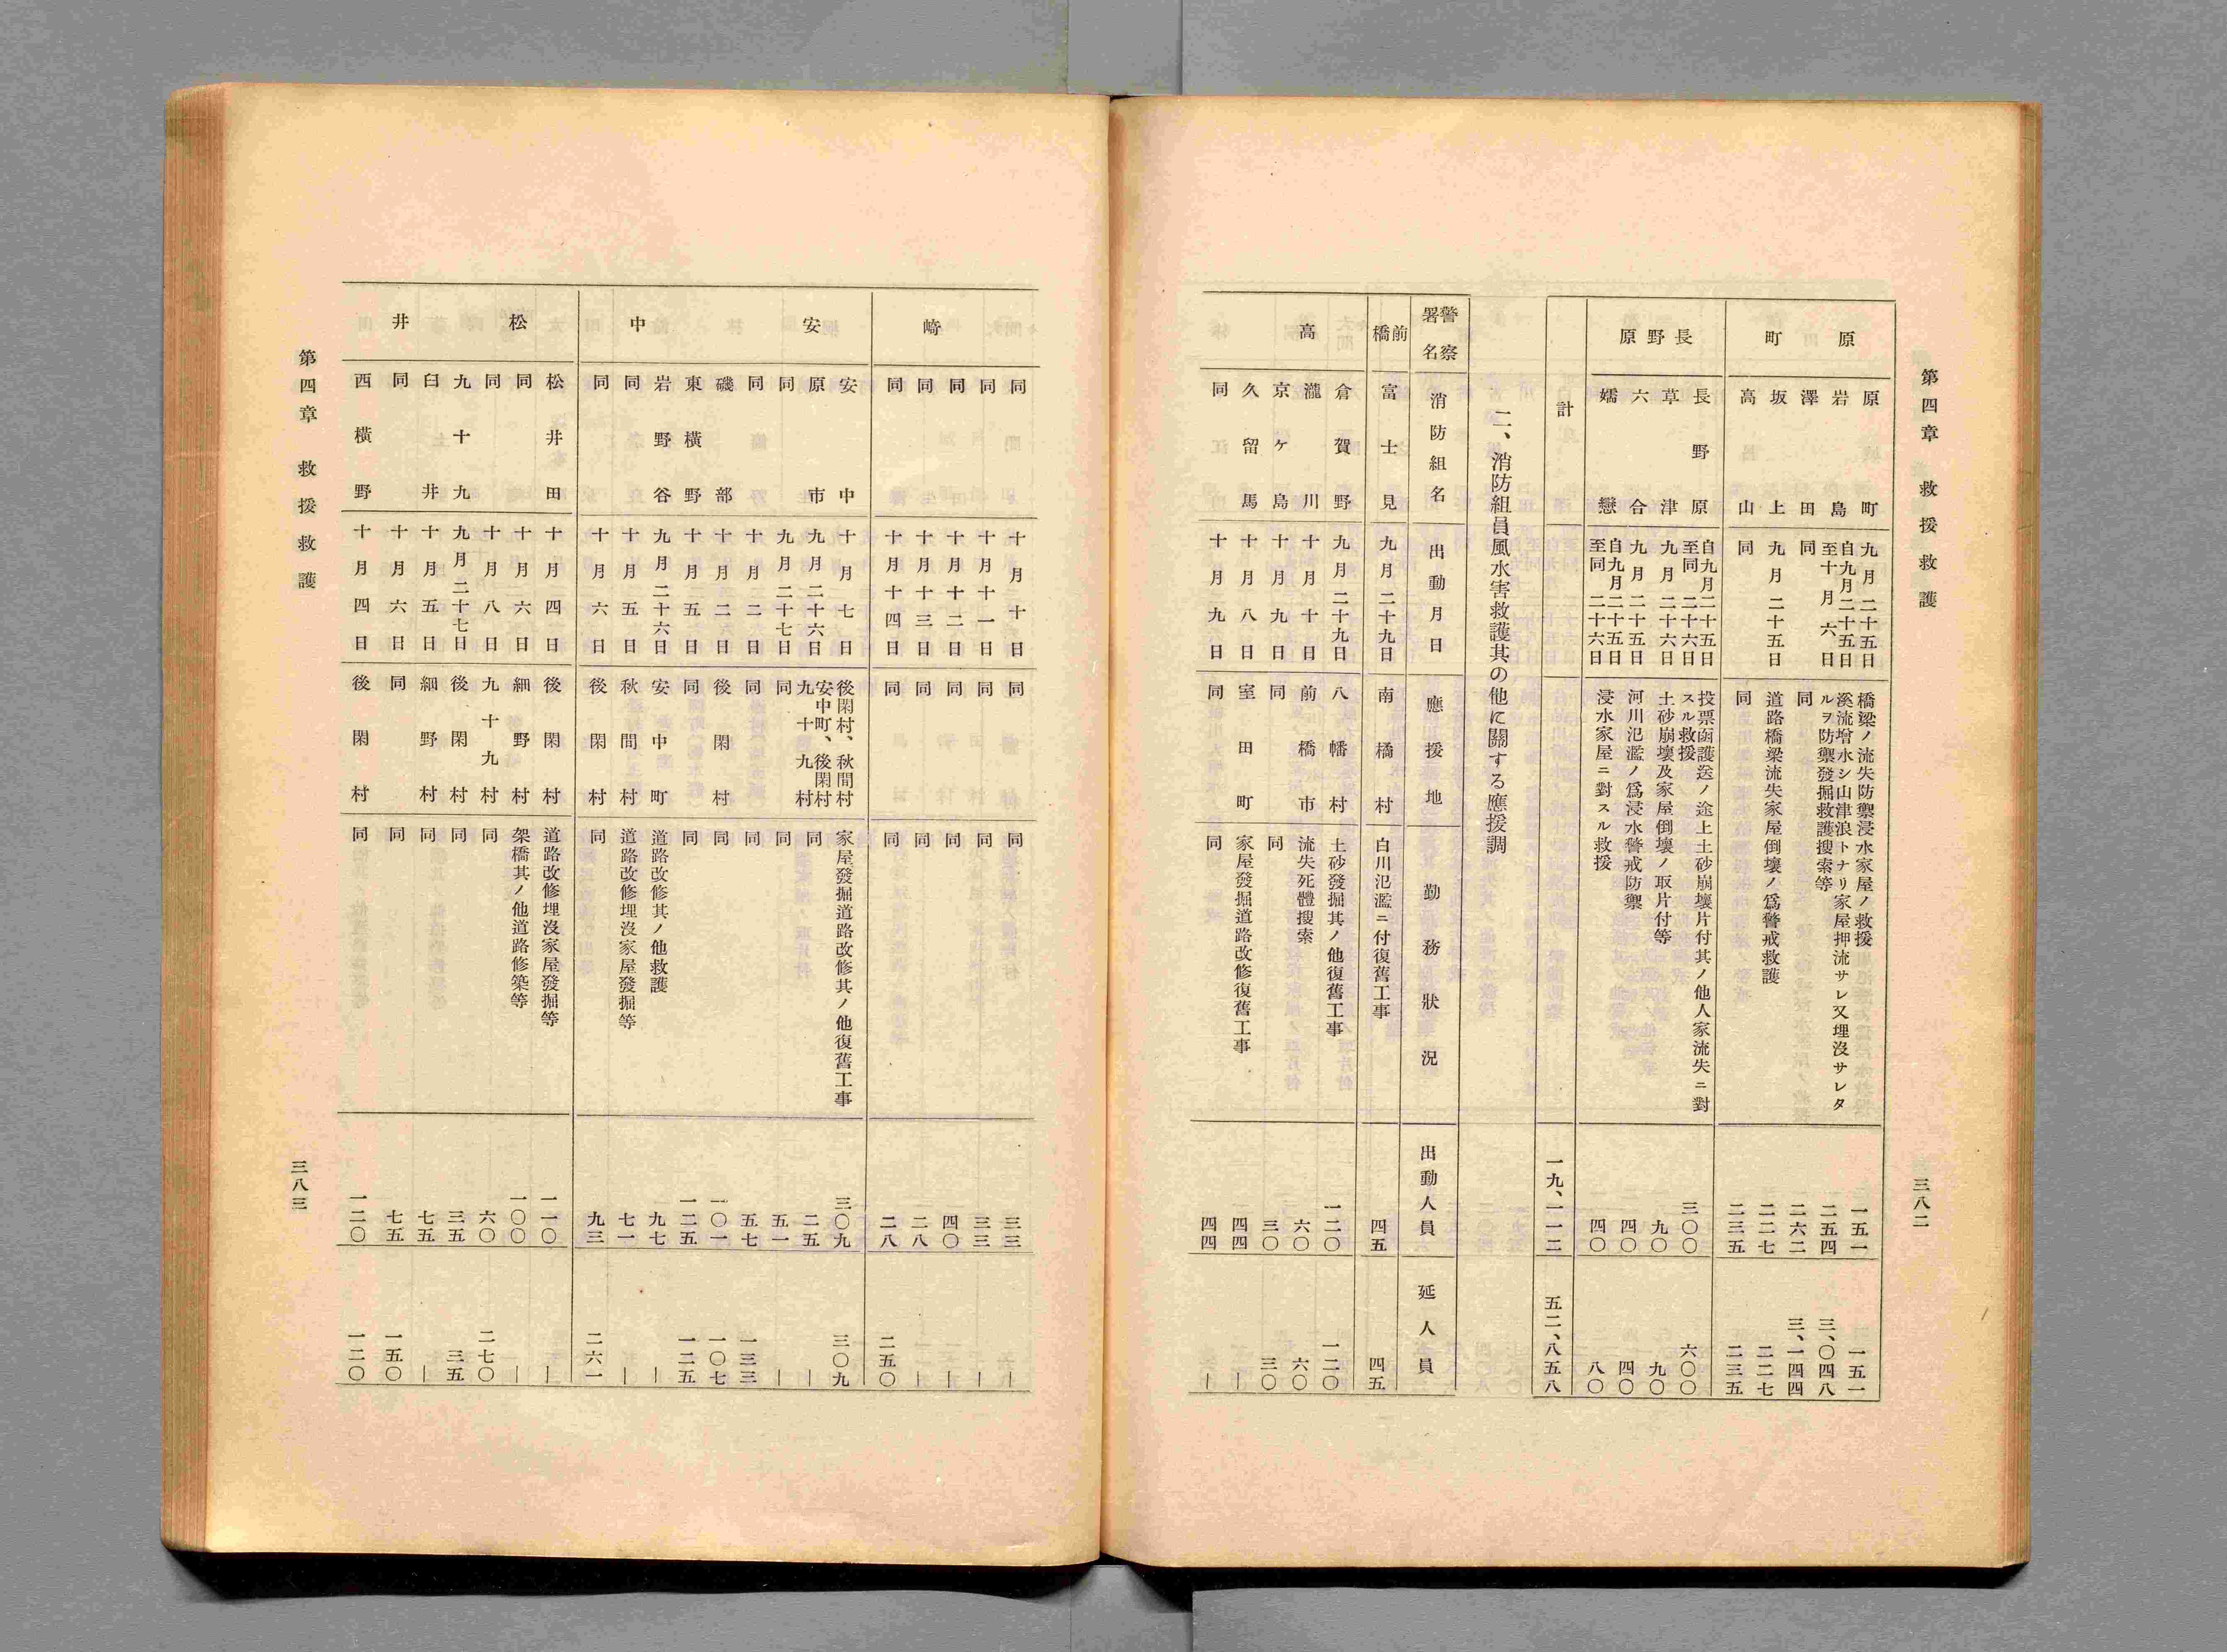 第四章 救援救護
三八二
原町
原町 九月二十五日 橋梁ノ流失防禦浸水家屋ノ救援 一五一 一五一
岩島 自九月二十五日至十月六日 溪流增水シ山津浪トナリ家屋押流サレ又埋沒サレタルヲ防禦發掘救護搜索等 二五四 三、〇四八
澤田 同 同 二六二 三、一四四
坂上 九月二十五日 道路橋梁流失家屋倒壞ノ爲警戒救護 二二七 二二七
高山 同 同 二三五 二三五
長野原
長野原 自九月二十五日至同二十六日 投票函護送ノ途上土砂崩壞片付其ノ他人家流失ニ對スル救援 三〇〇 六〇〇
草津 九月二十六日 土砂崩壞及家屋倒壞ノ取片付等 九〇 九〇
六合 九月二十五日 河川氾濫ノ爲浸水警戒防禦 四〇 四〇
嬬戀 自九月二十五日至同二十六日 浸水家屋ニ對スル救援 四〇 八〇
計 一九、一一二 五二、八五八
二、消防組員風水害救護其の他に關する應援調
警察署名 消防組名 出動月日 應援地 勤務狀況 出動人員 延人員
前橋 富士見 九月二十九日 南橋村 白川氾濫ニ付復舊工事 四五 四五
高
倉賀野 九月二十九日 八幡村 土砂發掘其ノ他復舊工事 一二〇 一二〇
瀧川 十月十日 前橋市 流失死體搜索 六〇 六〇
京ヶ島 十月九日 同 同 三〇 三〇
久留馬 十月八日 室田町 家屋發掘道路改修復舊工事 四四 ―
同 十月九日 同 同 四四 ―
崎
同 十月十日 同 同 三三 ―
同 十月十一日 同 同 三三 ―
同 十月十二日 同 同 四〇 ―
同 十月十三日 同 同 二八 ―
同 十月十四日 同 同 二八 二五〇
安中
安中 十月七日 後閑村、秋間村 家屋發掘道路改修其ノ他復舊工事 三〇九 三〇九
原市 九月二十六日 安中町、後閑村九十九村 同 二五 ―
同 九月二十七日 同 同 五一 ―
同 十月二日 同 同 五七 一三三
磯部 十月二日 後閑村 同 一〇一 一〇七
東橫野 十月五日 同 同 一二五 一二五
岩野谷 九月二十六日 安中町 道路改修其ノ他救護 九七 ―
同 十月五日 秋間村 道路改修埋沒家屋發掘等 七一 ―
同 十月六日 後閑村 同 九三 二六一
松井
松井田 十月四日 後閑村 道路改修埋沒家屋發掘等 一一〇 ―
同 十月六日 細野村 架橋其ノ他道路修築等 一〇〇 ―
同 十月八日 九十九村 同 六〇 二七〇
九十九 九月二十七日 後閑村 同 三五 三五
臼井 十月五日 細野村 同 七五 ―
同 十月六日 同 同 七五 一五〇
西橫野 十月四日 後閑村 同 一二〇 一二〇
第四章 救援救護
三八三